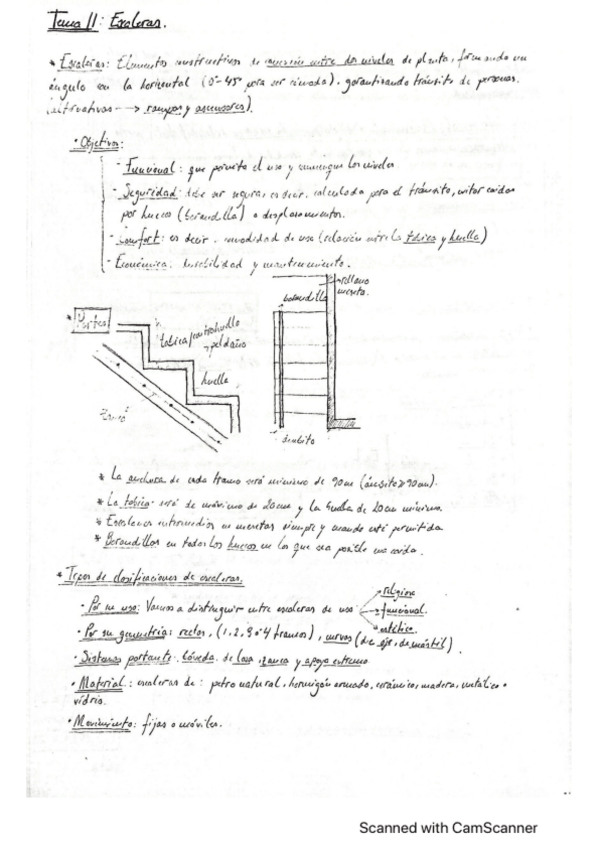 Tema 11: Escaleras.
* Escaleras: Elementos constructivos de conexión entre dos niveles de planta, formando un
ángulo con la horizontal (0°-45° para ser cómoda), garantizando tránsito de personas.
(alternativas --> rampas y ascensores).
· Objetivos:
- Funcional: que permita el uso y comunique los niveles
- Seguridad: debe ser segura, es decir, calculada para el tránsito, evitar caídas
por huecos (barandilla) o desplazamientos.
- Comfort: es decir, comodidad de uso (relación entre la tabica y huella)
- Económica: durabilidad y mantenimiento.
* Partes
tabica/contrahuella
peldaño
huella
zanca
barandilla
rellano
meseta.
ámbito
* La anchura de cada tramo será mínimo de 90cm (ámbito ≥ 90cm).
* La tabica será de máximo de 20cm y la huella de 20cm mínimo.
* Escalones intermedios en mesetas siempre y cuando esté permitida
* Barandillas en todos los huecos en los que sea posible una caída.
* Tipos de clasificaciones de escaleras.
· Por su uso: Vamos a distinguir entre escaleras de uso
religioso
funcional.
estético.
· Por su geometría: rectas, (1, 2, 3 o 4 tramos), curvas (de eje, de mástil).
· Sistemas portante: bóveda, de losa, zanca y apoyo extremo
· Material: escaleras de: petro natural, hormigón armado, cerámico, madera, metálico o
vidrio.
· Movimiento: fijas o móviles.
Scanned with CamScanner